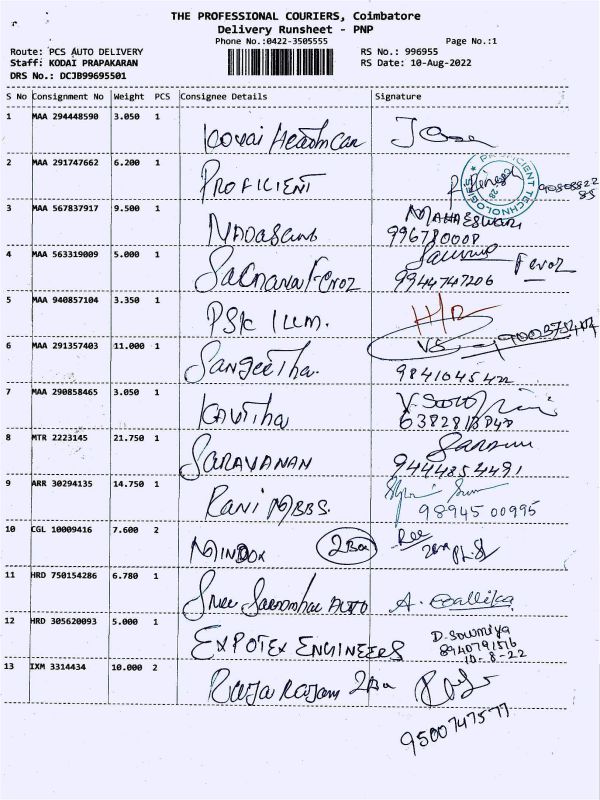 THE PROFESSIONAL COURIERS, Coimbatore
Delivery Runsheet - PNP
Phone No.:0422-3505555
Page No.:1
Route: PCS AUTO DELIVERY
RS No.: 996955
Staff: KODAI PRAPAKARAN
RS Date: 10-Aug-2022
DRS No.: DCJB99695501
S No Consignment No Weight PCS Consignee Details Signature
1 MAA 294448590 3.050 1
Kovai Healthcar
2 MAA 291747662 6.200 1
PROFICIENT
PROFICIENT TECHNOLOGIES
3 MAA 567837917 9.500 1
MAHAESWARI
4 MAA 563319009 5.000 1
Feroz
9944747206
5 MAA 940857104 3.350 1
PSK
6 MAA 291357403 11.000 1
VS
Sangeetha.
9841045422
7 MAA 290858465 3.050 1
Kavitha
8 MTR 2223145 21.750 1
SARAVANAN
9444854491
9 ARR 30294135 14.750 1
Rani MBBS.
98945 00995
10 CGL 10009416 7.600 2
2Box
11 HRD 750154286 6.780 1
AUTO
12 HRD 305620093 5.000 1
D. Sowmiya
EXPOTEX ENGINEERS
8940791576
10-8-22
13 IXM 3314434 10.000 2
Raja Rajam 2Box
9500747577